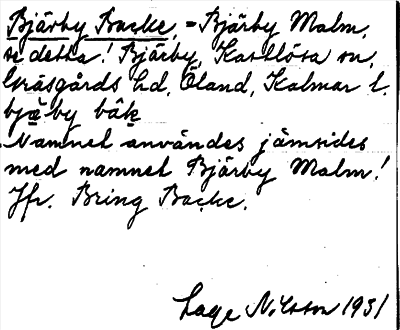 Bjärby Backe, = Bjärby Malm,
se detta! Bjärby, Kastlösa sn,
Gräsgårds hd, Öland, Kalmar l.
bjäby båk
Namnet användes jämsides
med namnet Bjärby Malm!
Jfr. Bring Backe.
Lage Nilsson 1931